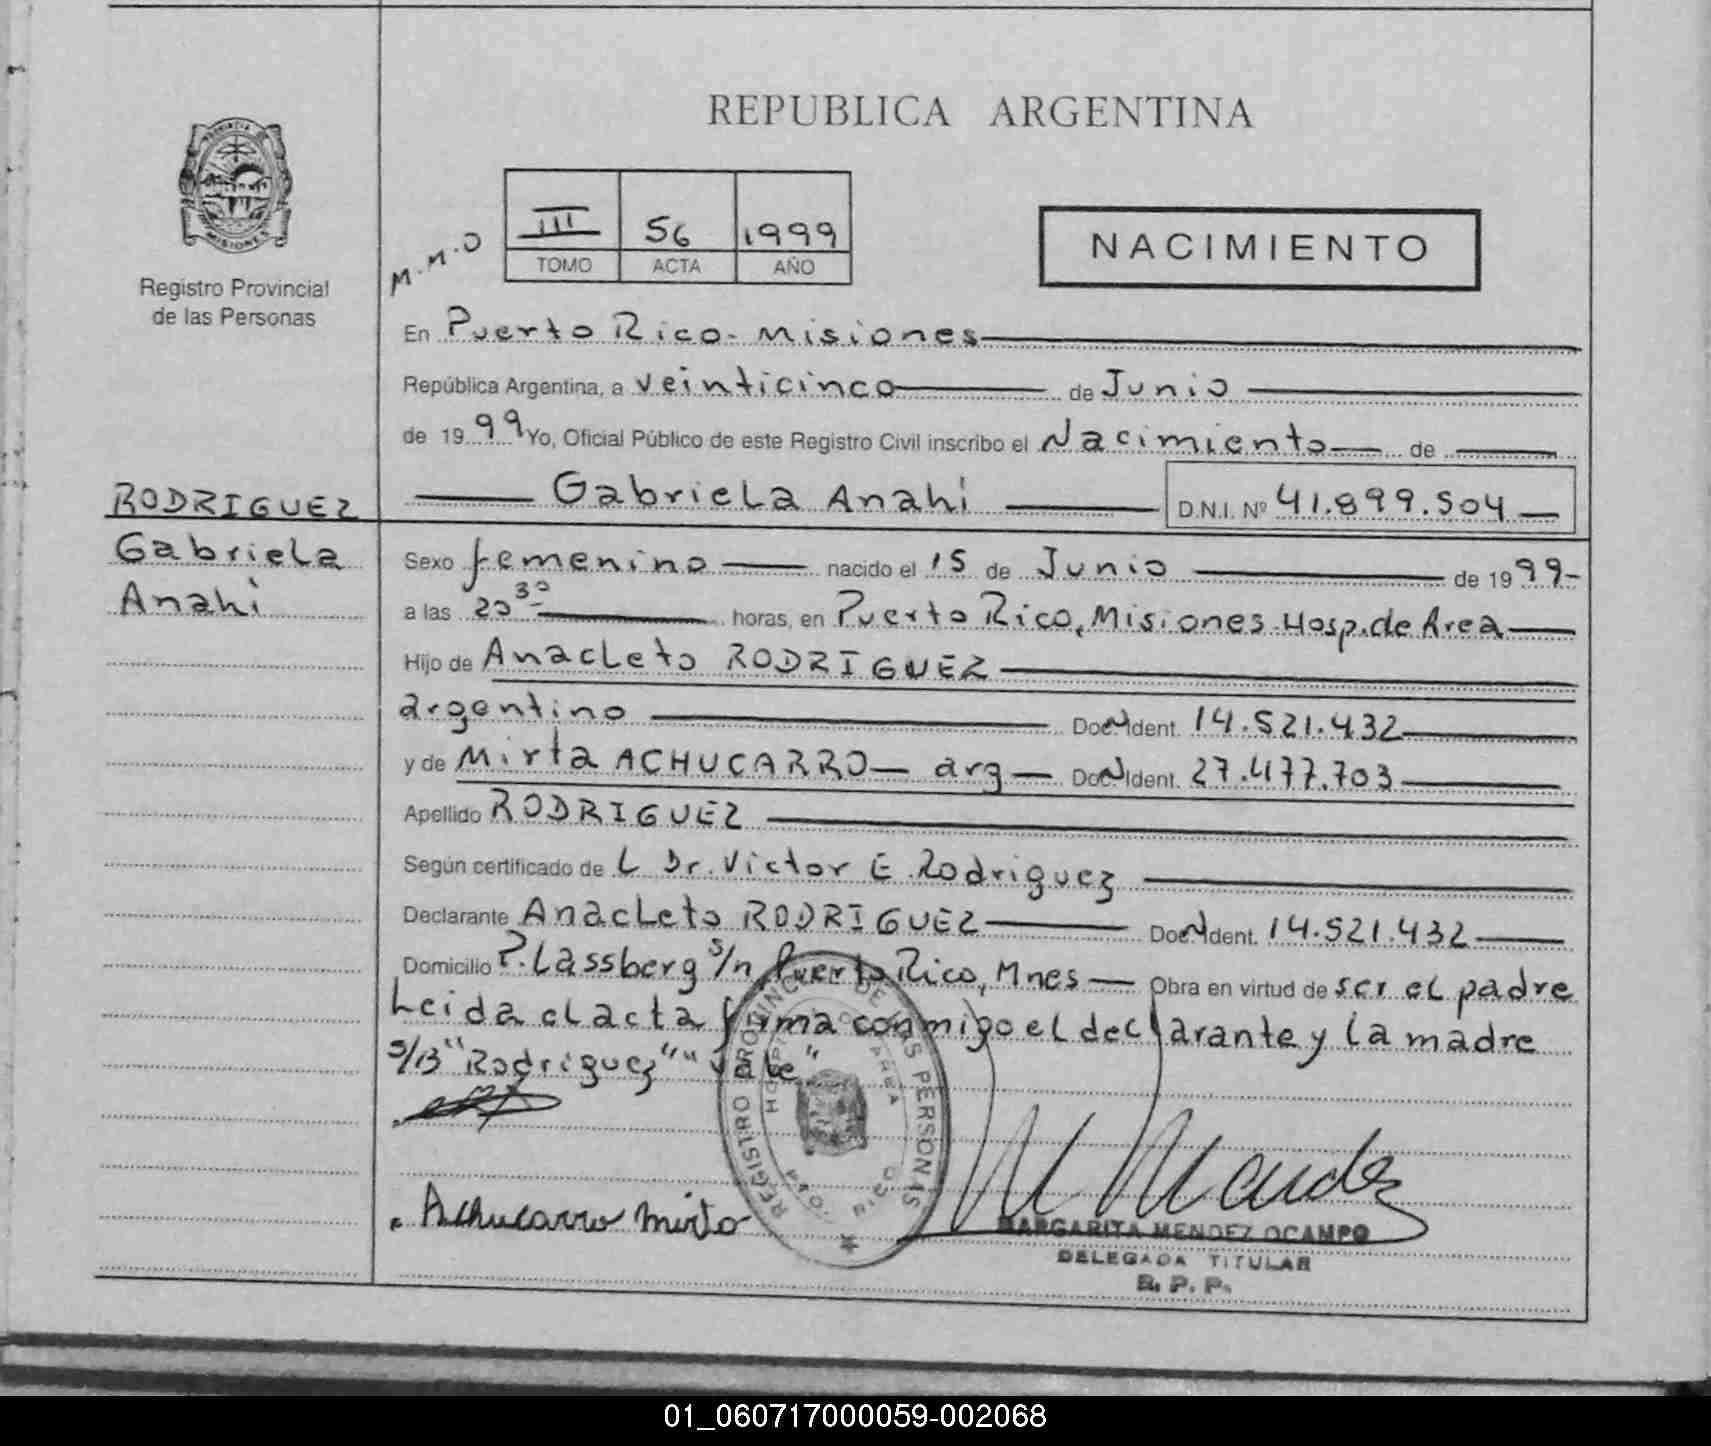 REPUBLICA ARGENTINA
PROVINCIA DE
MISIONES
Registro Provincial
de las Personas
M.M.O
III 56 1999
TOMO ACTA AÑO
NACIMIENTO
En Puerto Rico- Misiones
República Argentina, a veinticinco de Junio
de 1999 Yo, Oficial Público de este Registro Civil inscribo el Nacimiento de
Gabriela Anahi D.N.I. Nº 41.899.504
RODRIGUEZ
Gabriela
Anahi
Sexo femenino nacido el 15 de Junio de 1999-
a las 20 30 horas, en Puerto Rico, Misiones-Hosp.de Area
Hijo de Anacleto RODRIGUEZ
argentino Doc. Ident. 14.521.432
y de Mirta ACHUCARRO- arg- Doc. Ident. 27.477.703
Apellido RODRIGUEZ
Según certificado de L Dr. Victor E. Rodriguez
Declarante Anacleto RODRIGUEZ Doc. Ident. 14.521.432
Domicilio P. Lassberg s/n Puerto Rico, Mnes- Obra en virtud de ser el padre
Leida el acta firma conmigo el declarante y la madre
S/B "Rodriguez" "Vale"
REGISTRO PROVINCIAL DE LAS PERSONAS
HOSPITAL DE AREA
PTO. RICO
Achucarro Mirta
M Mendez
MARGARITA MENDEZ OCAMPO
DELEGADA TITULAR
R. P. P.
01_060717000059-002068